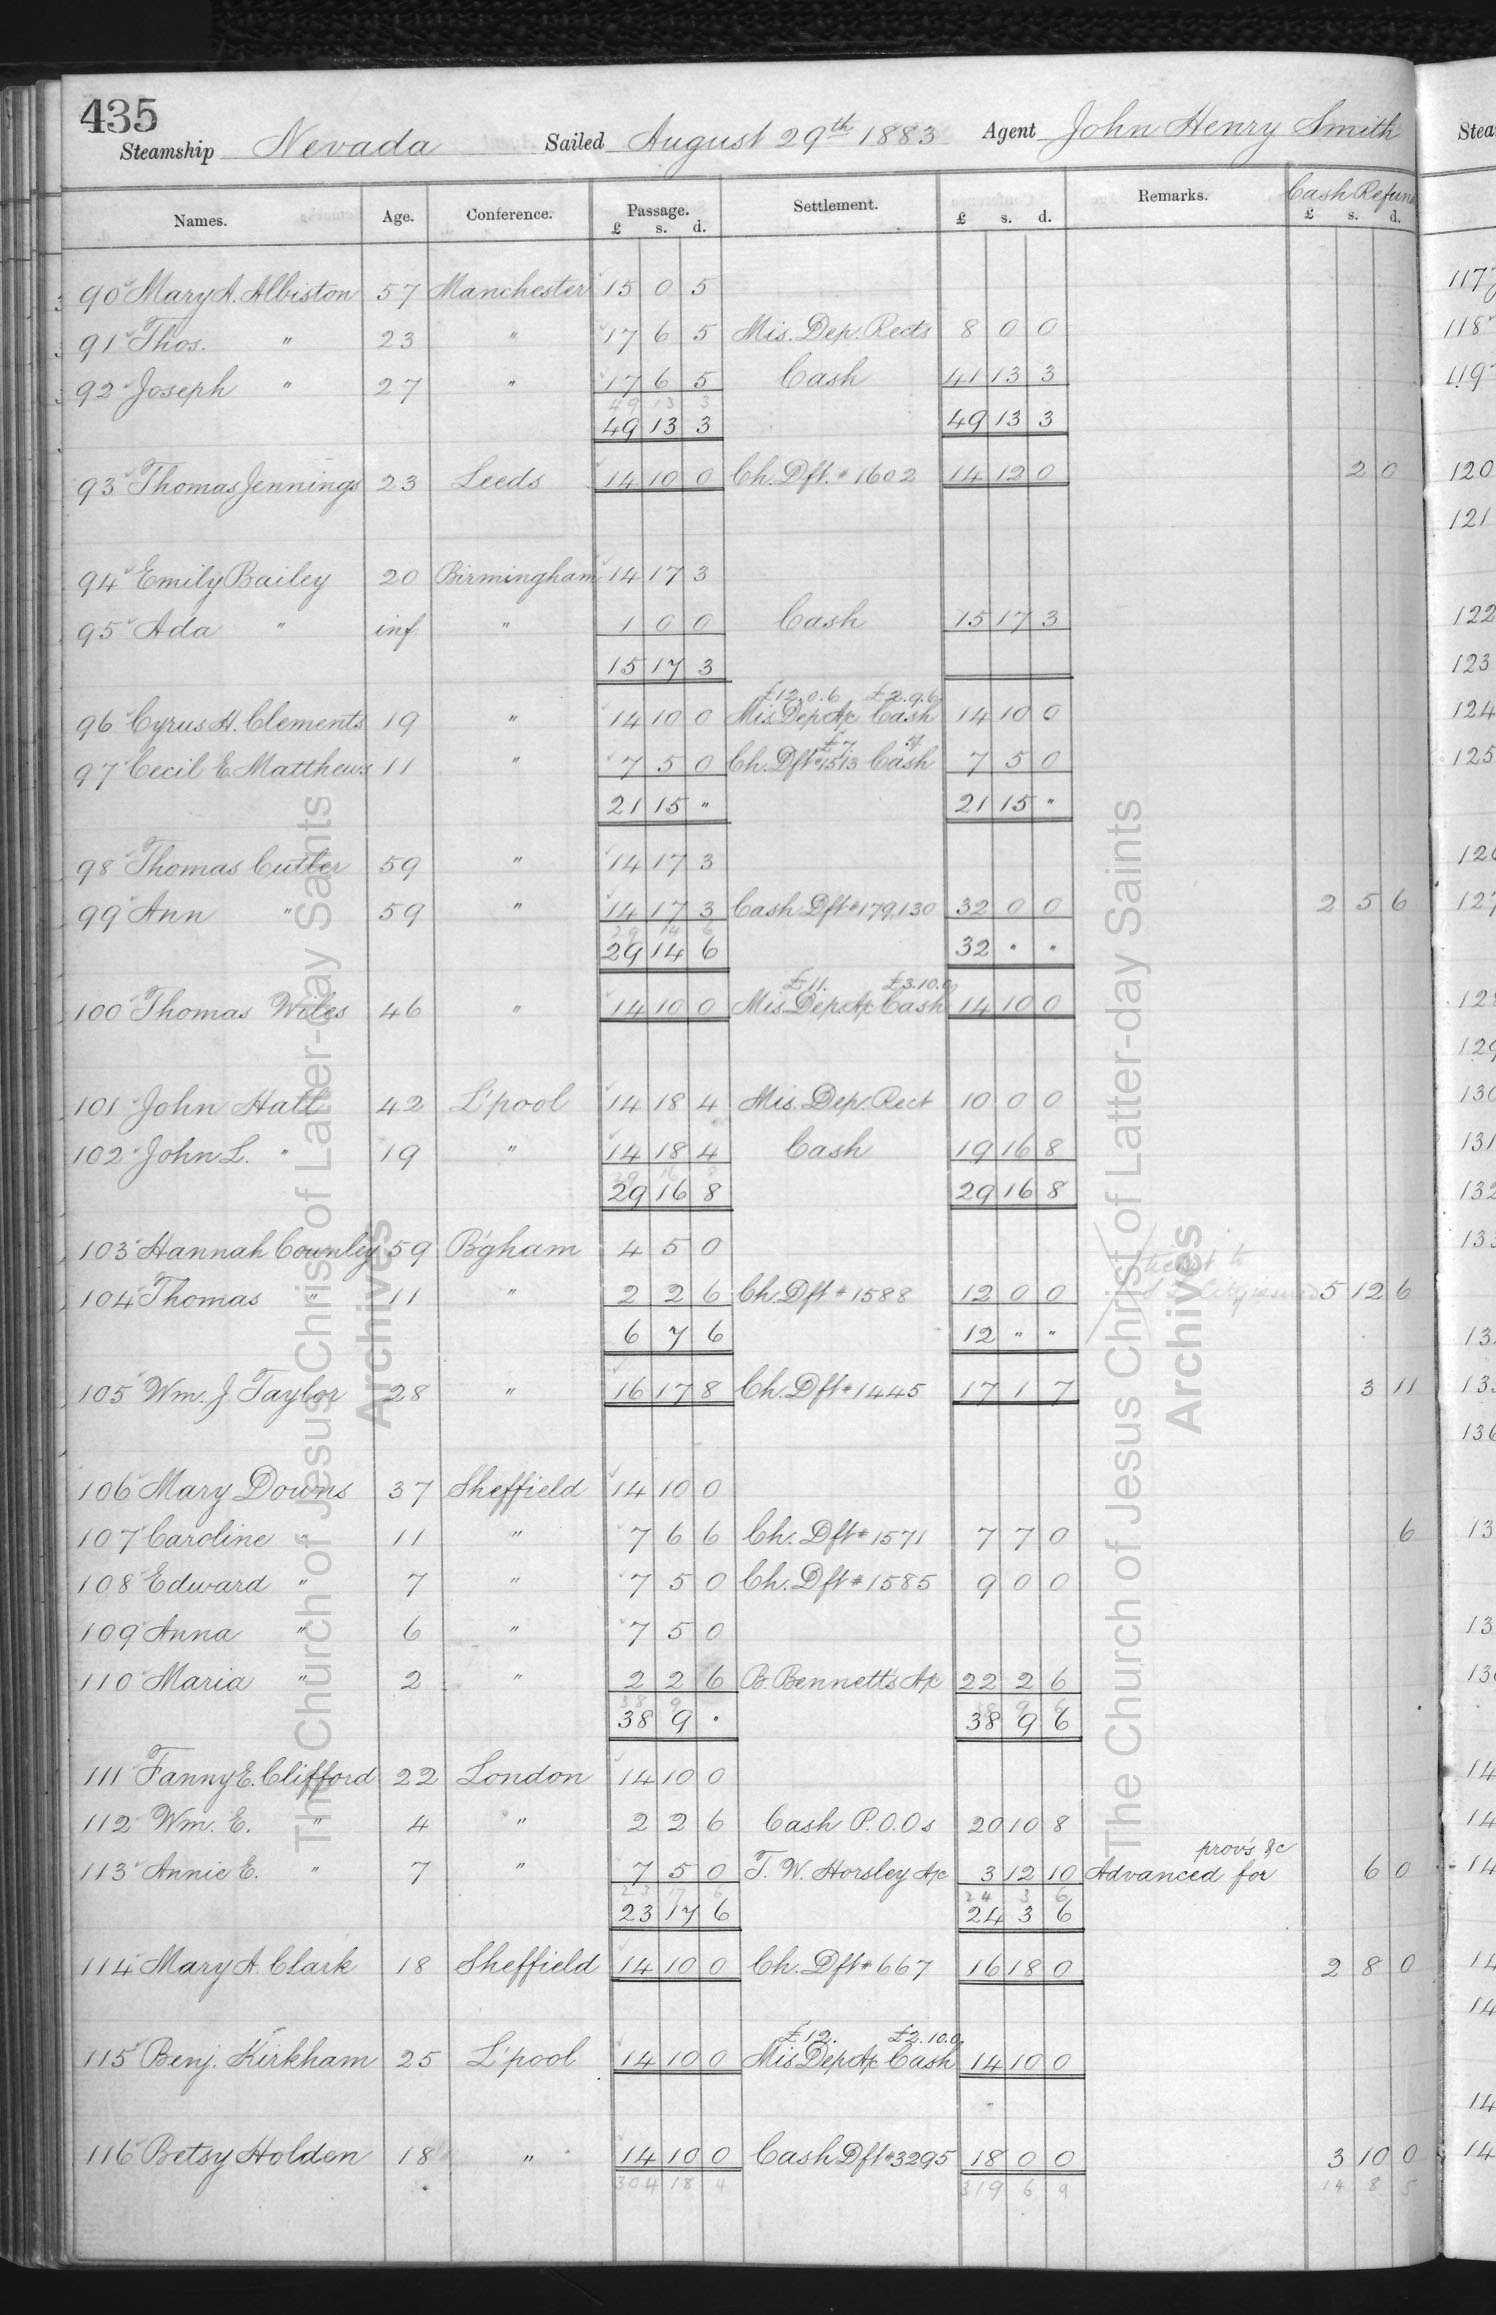 435
Steamship Nevada Sailed August 29th 1883 Agent John Henry Smith
Names. Age. Conference. Passage. Settlement. Remarks. Cash Refund
£ s. d. £ s. d. £ s. d.
90 Mary A. Albiston 57 Manchester 15 0 5
91 Thos. " 23 " 17 6 5 Mis. Dep. Rects 8 0 0
92 Joseph " 27 " 17 6 5 Cash 41 13 3
49 13 3
49 13 3 49 13 3
93 Thomas Jennings 23 Leeds 14 10 0 Ch. Dft. # 1602 14 12 0 2 0
94 Emily Bailey 20 Birmingham 14 17 3
95 Ada " inf " 1 0 0 Cash 15 17 3
15 17 3
£12.0.6 £2.9.6
96 Cyrus H. Clements 19 " 14 10 0 Mis Dep A/c Cash 14 10 0
£7 5/
97 Cecil E Matthews 11 " 7 5 0 Ch. Dft # 1513 Cash 7 5 0
21 15 " 21 15 "
98 Thomas Cutler 59 " 14 17 3
99 Ann " 59 " 14 17 3 Cash Dft # 179,130 32 0 0 2 5 6
29 14 6
29 14 6 32 " "
£11. £3.10.0
100 Thomas Wiles 46 " 14 10 0 Mis Dep A/c Cash 14 10 0
101 John Hall 42 L'pool 14 18 4 Mis. Dep. Rect 10 0 0
102 John L. " 19 " 14 18 4 Cash 19 16 8
29 16 8
29 16 8 29 16 8
103 Hannah Cownley 59 B'gham 4 5 0
104 Thomas " 11 " 2 2 6 Ch. Dft # 1588 12 0 0 5 12 6
6 7 6 12 " "
105 Wm. J Taylor 28 " 16 17 8 Ch. Dft # 1445 17 1 7 3 11
106 Mary Downs 37 Sheffield 14 10 0
107 Caroline " 11 " 7 6 6 Ch. Dft # 1571 7 7 0 6
108 Edward " 7 " 7 5 0 Ch. Dft # 1585 9 0 0
109 Anna " 6 " 7 5 0
110 Maria " 2 " 2 2 6 B. Bennetts A/c 22 2 6
38 9 38 9 6
38 9 " 38 9 6
111 Fanny E. Clifford 22 London 14 10 0
112 Wm. E. " 4 " 2 2 6 Cash P.O.Os 20 10 8
prov's &c
113 Annie E. " 7 " 7 5 0 T. W. Horsley A/c 3 12 10 Advanced for 6 0
23 17 6 24 3 6
23 17 6 24 3 6
114 Mary A. Clark 18 Sheffield 14 10 0 Ch. Dft # 667 16 18 0 2 8 0
£12. £2.10.0
115 Benj. Kirkham 25 L'pool 14 10 0 Mis Dep A/c Cash 14 10 0
116 Betsy Holden 18 " 14 10 0 Cash Dft # 3295 18 0 0 3 10 0
304 18 4 319 6 9 14 8 5
The Church of Jesus Christ of Latter-day Saints
Archives
The Church of Jesus Christ of Latter-day Saints
Archives
117
118
119
120
121
122
123
124
125
127
130
131
132